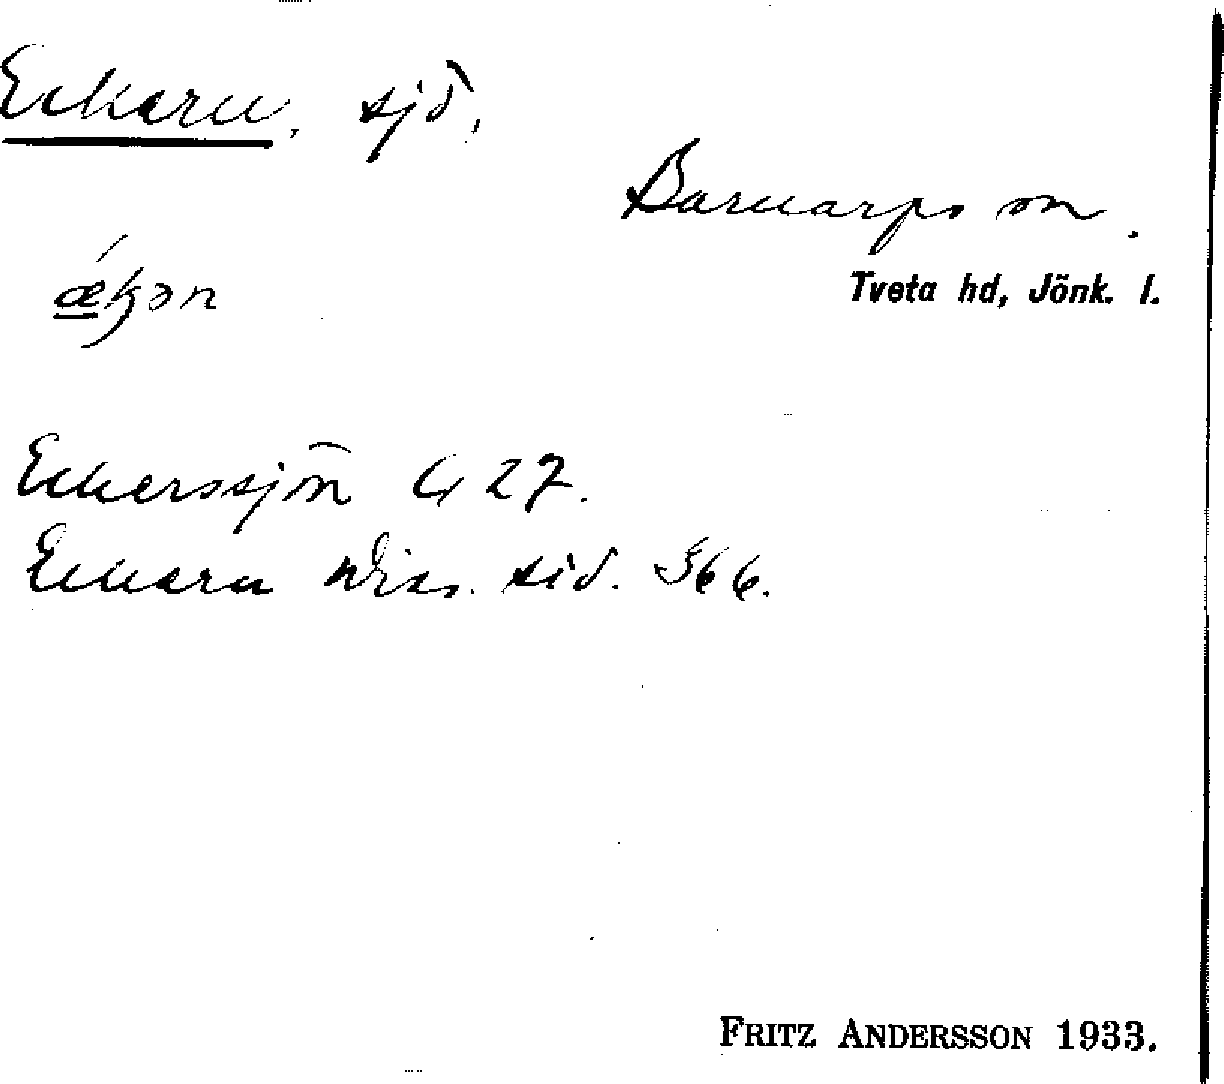 Eckern, sjö,
Barnarps sn.
Tveta hd, Jönk. l.
ǽkən
Eckerssjön G 27.
Eckern Wies. sid. 366.
FRITZ ANDERSSON 1933.